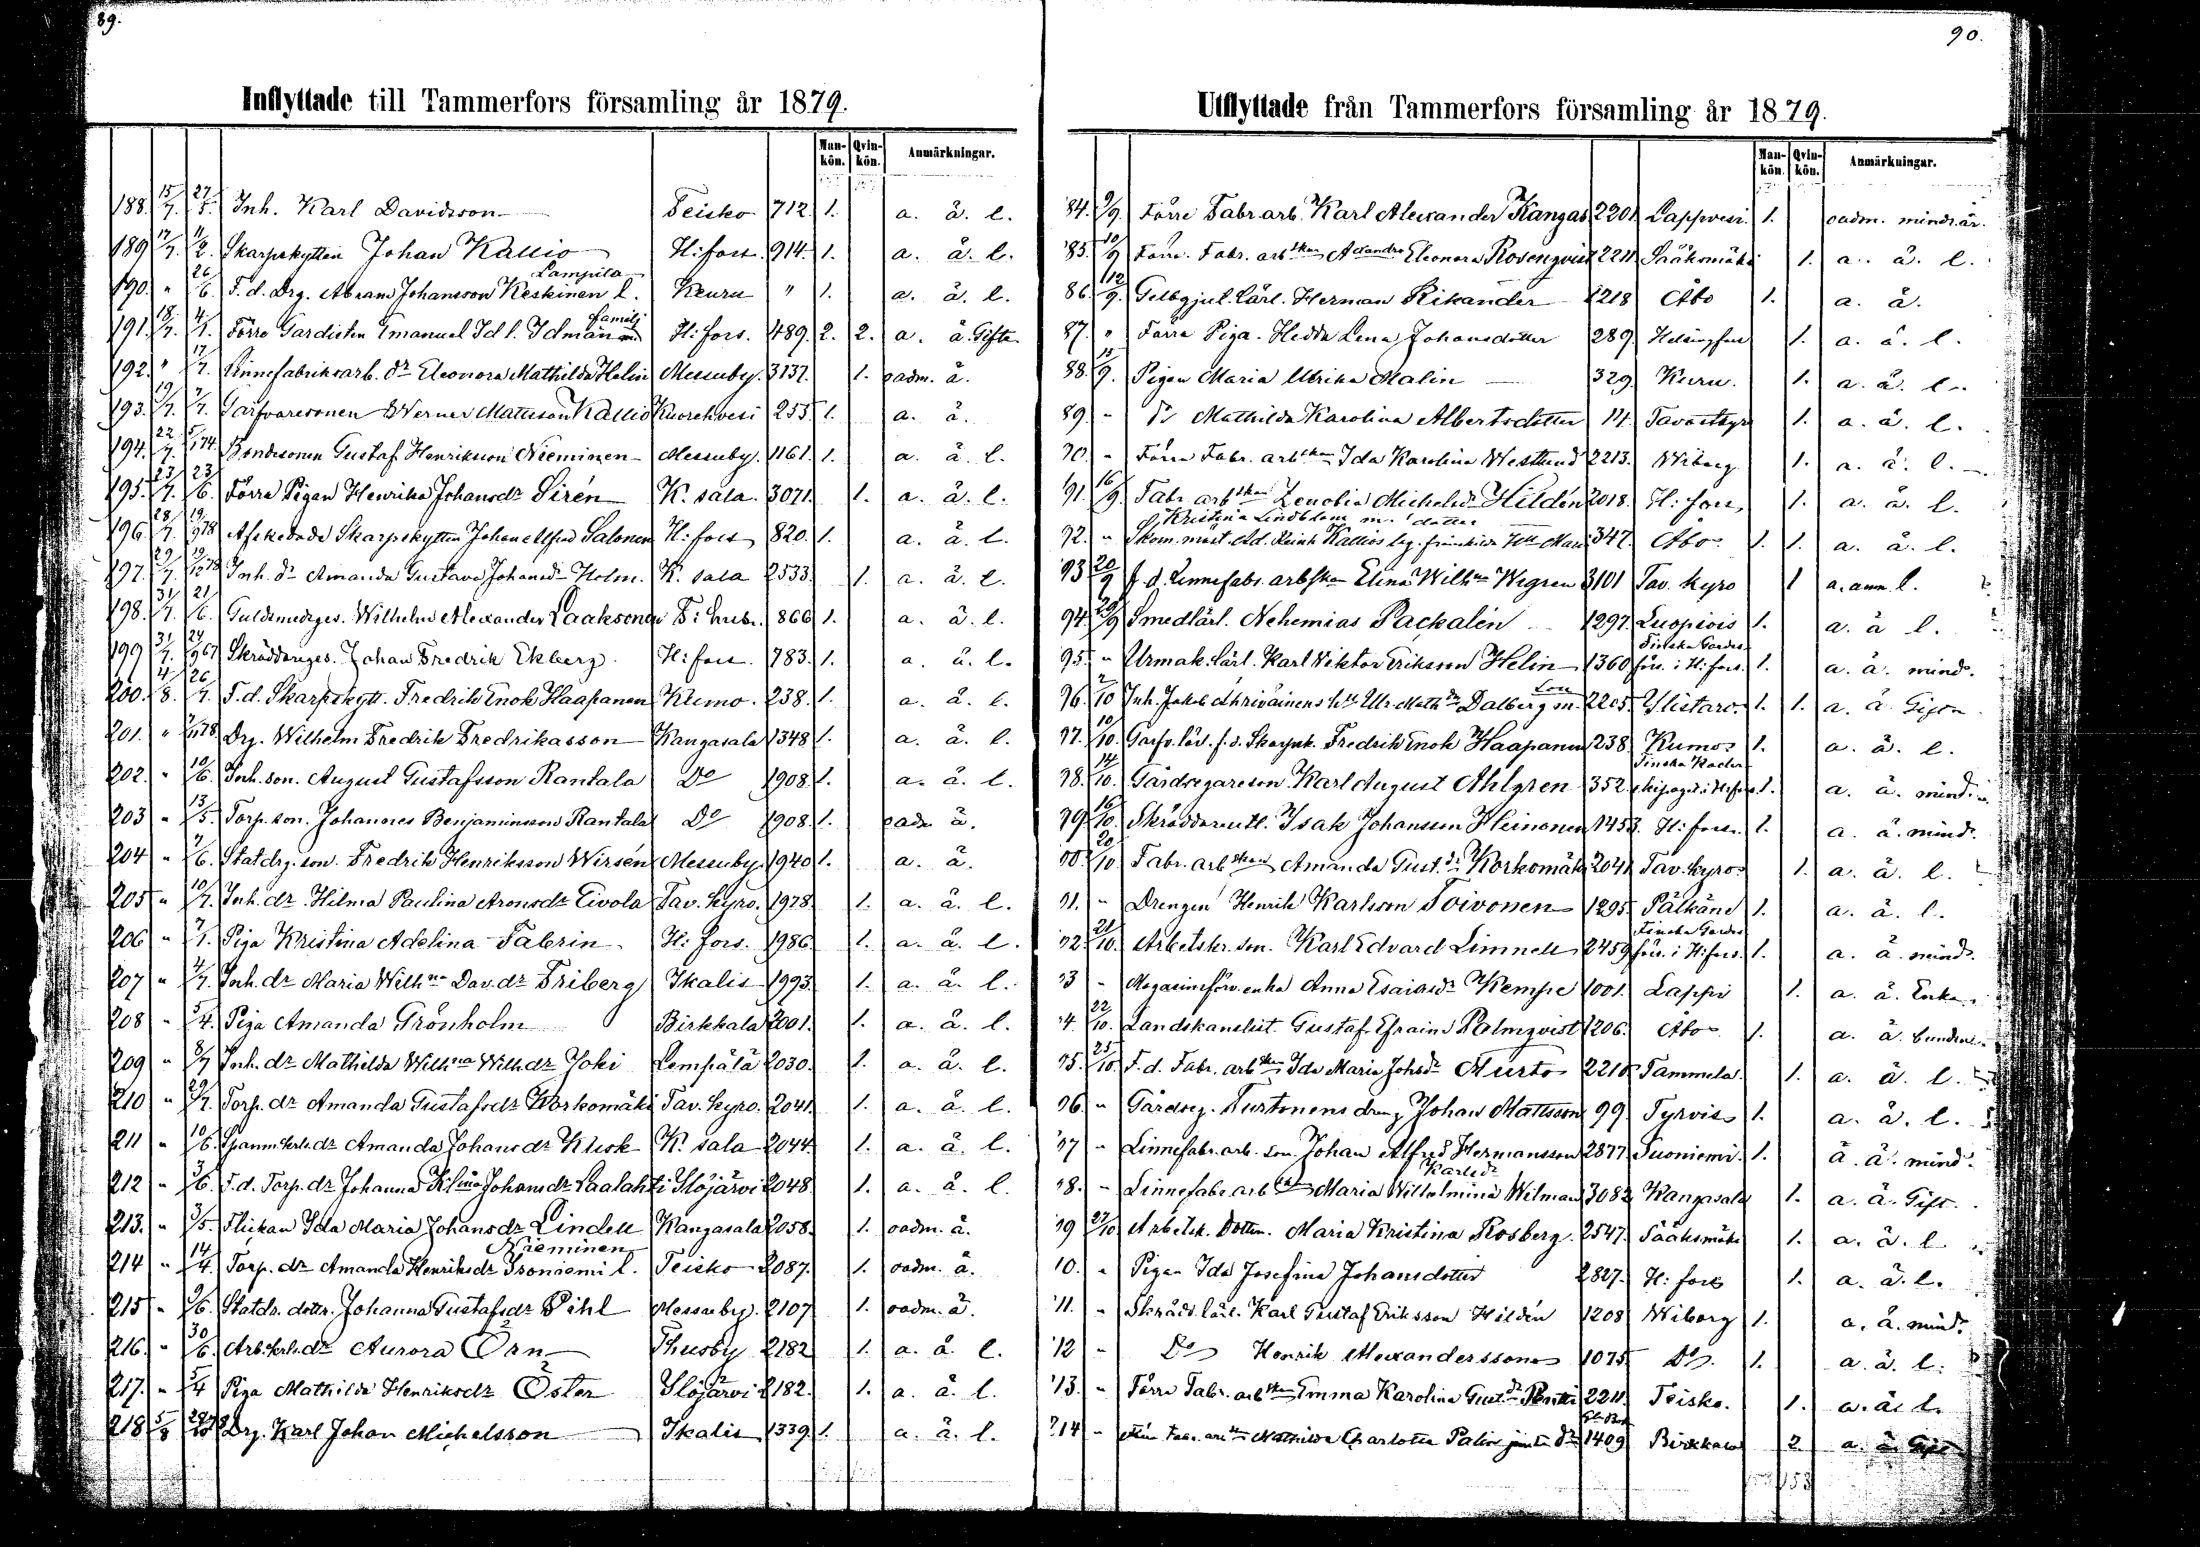 89.
Inflyttade till Tammerfors församling år 1879.
Mankön. Qvinkön. Anmärkningar.
188. 15/7. 27/5. Inh. Karl Davidsson Teisko 712. 1. a. å. l.
189. 17/7. 11/2. Skarpskytten Johan Kallio H:fors. 914. 1. a. å. l.
Lampila
190. " 26/6. F. d. Drg. Abram Johansson Keskinen l. Keuru " 1. a. å. l.
familj
191. 18/7. 4/7. Förre Gardisten Emanuel Id l. Idman m. H:fors. 489. 2. 2. a. å. Gifta
192. " 17/7. Linnefabriksarb. dr Eleonora Mathilda Helin Messuby. 3137. 1. oadm. å.
193. 19/7. 7/7. Garfvaresonen Werner Mattsson Kallio Kuorehvesi 255 1. a. å.
194. 22/7. 5/174 Bondesonen Gustaf Henriksson Nieminen Messuby. 1161. 1. a. å. l.
195. 23/7. 23/6. Förra Pigan Henrika Johansdr Sirén K. sala. 3071. 1. a. å. l.
196. 28/7. 19/978 Afskedade Skarpskytten Johan Alfred Salonen H:fors 820. 1. a. å. l.
197. 29/7. 19/1278 Inh. dr Amanda Gustava Johansdr Holm. K. sala 2533. 1. a. å. l.
198. 31/7. 21/6. Guldsmedges. Wilhelm Alexander Laaksonen 866 1. a. å. l.
199 31/7. 24/967 Skräddareges. Johan Fredrik Ekberg. H:fors. 783. 1. a. å. l.
200. 4/8. 26/7. F. d. Skarpskytt. Fredrik Enok Haapanen Kumo. 238. 1. a. å. l.
201. " 7/1178 Drg. Wilhelm Fredrik Fredriksson Kangasala 1348 1. a. å. l.
202. " 10/6. Inh. son. August Gustafsson Rantala Do 1908. 1. a. å. l.
203 " 13/5. Torp. son. Johannes Benjaminsson Rantala Do 1908. 1. oadm. å.
204 " 7/6. Statdrg. son. Fredrik Henriksson Wirsén Messuby. 1940 1. a. å.
205 " 10/7. Inh. dr. Hilma Paulina Aronsdr Eivola Tav. Kyro. 1978. 1. a. å. l.
206 " 7/7. Piga Kristina Adelina Fabrin H:fors. 1986. 1. a. å. l.
207 " 4/7. Inh. dr Maria Wilhna Dav. dr Friberg Ikalis 1993. 1. a. å. l.
208 " 5/4. Piga Amanda Grönholm Birkkala 2001. 1. a. å. l.
209 " 8/7 Inh. dr Mathilda Wilhna Wilh. dr Joki Lempälä 2030. 1. a. å. l.
210 " 29/7. Torp. dr Amanda Gustafsdr Korkomäki Tav. Kyro. 2041. 1. a. å. l.
211 " 10/6. Spannkrls. dr Amanda Johansdr Kluok K. sala 2044. 1. a. å. l.
212 " 3/6. F. d. Torp. dr Johanna Johansdr Laalahti Ylöjärvi 2048. 1. a. å. l.
213. " 3/5. Flickan Ida Maria Johansdr Lindell Kangasala 2058. 1. oadm. å.
Nieminen
214 " 14/4. Torp. dr Amanda Henriksdr Ironiemi l. Teisko 2087. 1. oadm. å.
215 " 9/6. Statdr. dottr. Johanna Gustafsdr Pihl Messuby. 2107 1. oadm. å.
216. " 30/6. Arb.krls. dr Aurora Örn Thusby 2182 1. a. å. l.
217. " 5/4 Piga Mathilda Henriksdr Öster Ylöjärvi 2182. 1. a. å. l.
218 5/8 Drg. Karl Johan Michelsson Ikalis 1339. 1. a. å. l.
90.
Utflyttade från Tammerfors församling år 1879.
Mankön. Qvinkön. Anmärkningar.
84. 9/9. Förre Fabr. arb. Karl Alexander Kangas 2201 Lappvesi. 1. oadm. mindr.år.
85. 10/9 Förra Fabr. arbskan Eleonora Rosenqvist 2211 Sääksmäki 1. a. å. l.
86. 12/9. Gelbgjut. lärl. Herman Rikander 1218 Åbo 1. a. å.
87. " Förra Piga. Hedda Lena Johansdotter 289 Helsingfors 1. a. å. l.
88. 15/9. Pigan Maria Ulrika Malin 329 Kuru. 1. a. å. l.
89 " Do Mathilda Karolina Albertsdotter 14. Tavastkyro 1. a. å. l.
90. " Förra Fabr. arbskan Ida Karolina Westlund 2213. Wiborg 1. a. å. l.
91. 16/9. Fabr. arbskan Zenobia Michelsdr Hildén 2018. H:fors 1. a. å. l.
Kristina Lindblom m. dotter
92. " Skom. mäst. Ad. Reinh Kallios 347. Åbo 1. 1. a. å. l.
93 20/9 f. d. Linnefabr. arbskan Elina Wilhna Wegren 3101 Tav. Kyro 1 a. ann. l.
94. 29/9 Smedlärl. Nehemias Packalén 1297. Luopiois 1. a. å l.
Finska Gardes
95. " Urmak. lärl. Karl Wiktor Eriksson Helin 1360 förs. i H:fors. 1. a. å. mind.
Lou
96. 2/10 Inh. Jakob Ahriväinens Ulr. Math. dr Dalberg m. 2205. Ylistaro. 1. 1. a. å Gifta
97. 10/10. Garfv. lär. f. d. Skarpsk. Fredrik Enok Haapanen 238. Kumo 1. a. å. l.
Finska Kader
98. 14/10. Gårdsegareson Karl August Ahlgren 352. H:fors. 1. a. å. mind.
99. 16/10. Skräddareutl. Isak Johansson Heinonen 1453. H:fors. 1. a. å. mind.
00. 20/10. Fabr. arbskan Amanda Gust. dr Korkomäki 2041. Tav. Kyro 1. a. å. l.
01. " Drengen Henrik Karlsson Toivonen 1295. Pälkäne 1. a. å. l.
Finska Gardes
02. 21/10. Arbetskr. son. Karl Edvard Limnell 2459 förs. i H:fors. 1. a. å. mind.
03 " Magasinsförv. enka Anna Esaiasdr Kempe 1001. Lappi 1. a. å. Enka.
04. 22/10. Landskanslist. Gustaf Efraim Palmqvist 1206. Åbo 1. a. å. bunden.
05. 25/10. F. d. Fabr. arbskan Ida Maria Johsdr Aurto 2210 Tammela. 1. a. å. l.
06. " Gårdseg. Turtonens dreng Johan Mattsson 99. Tyrvis 1. a. å. l.
07 " Linnefabr. arb. son. Johan Alfred Hermansson 2877. Suoniemi. 1. a. å. mind.
Karlsdr
08. " Linnefabr. arbskan Maria Wilhelmina Wilman 3082 Kangasala 1. a. å. Gift.
09 27/10 Arbetsk. Dotter. Maria Kristina Rosberg. 2547. Sääksmäki 1. a. å. l.
10. " Pigan Ida Josefina Johansdotter 2827. H:fors 1. a. å. l.
11. " Skrädd. lärl. Karl Gustaf Eriksson Hildén 1208 Wiborg 1. a. å. mind.
12 " Do Henrik Alexandersson 1075. Do. 1. a. å. l.
13. " Förra Fabr. arbskan Emma Karolina Gust. dr Pentti 2211. Teisko. 1. a. å. l.
214 " Fabr. arbskan Mathilda Charlotta Palin jemte dr 1409 Birkkala 2 a. å. Gift
153